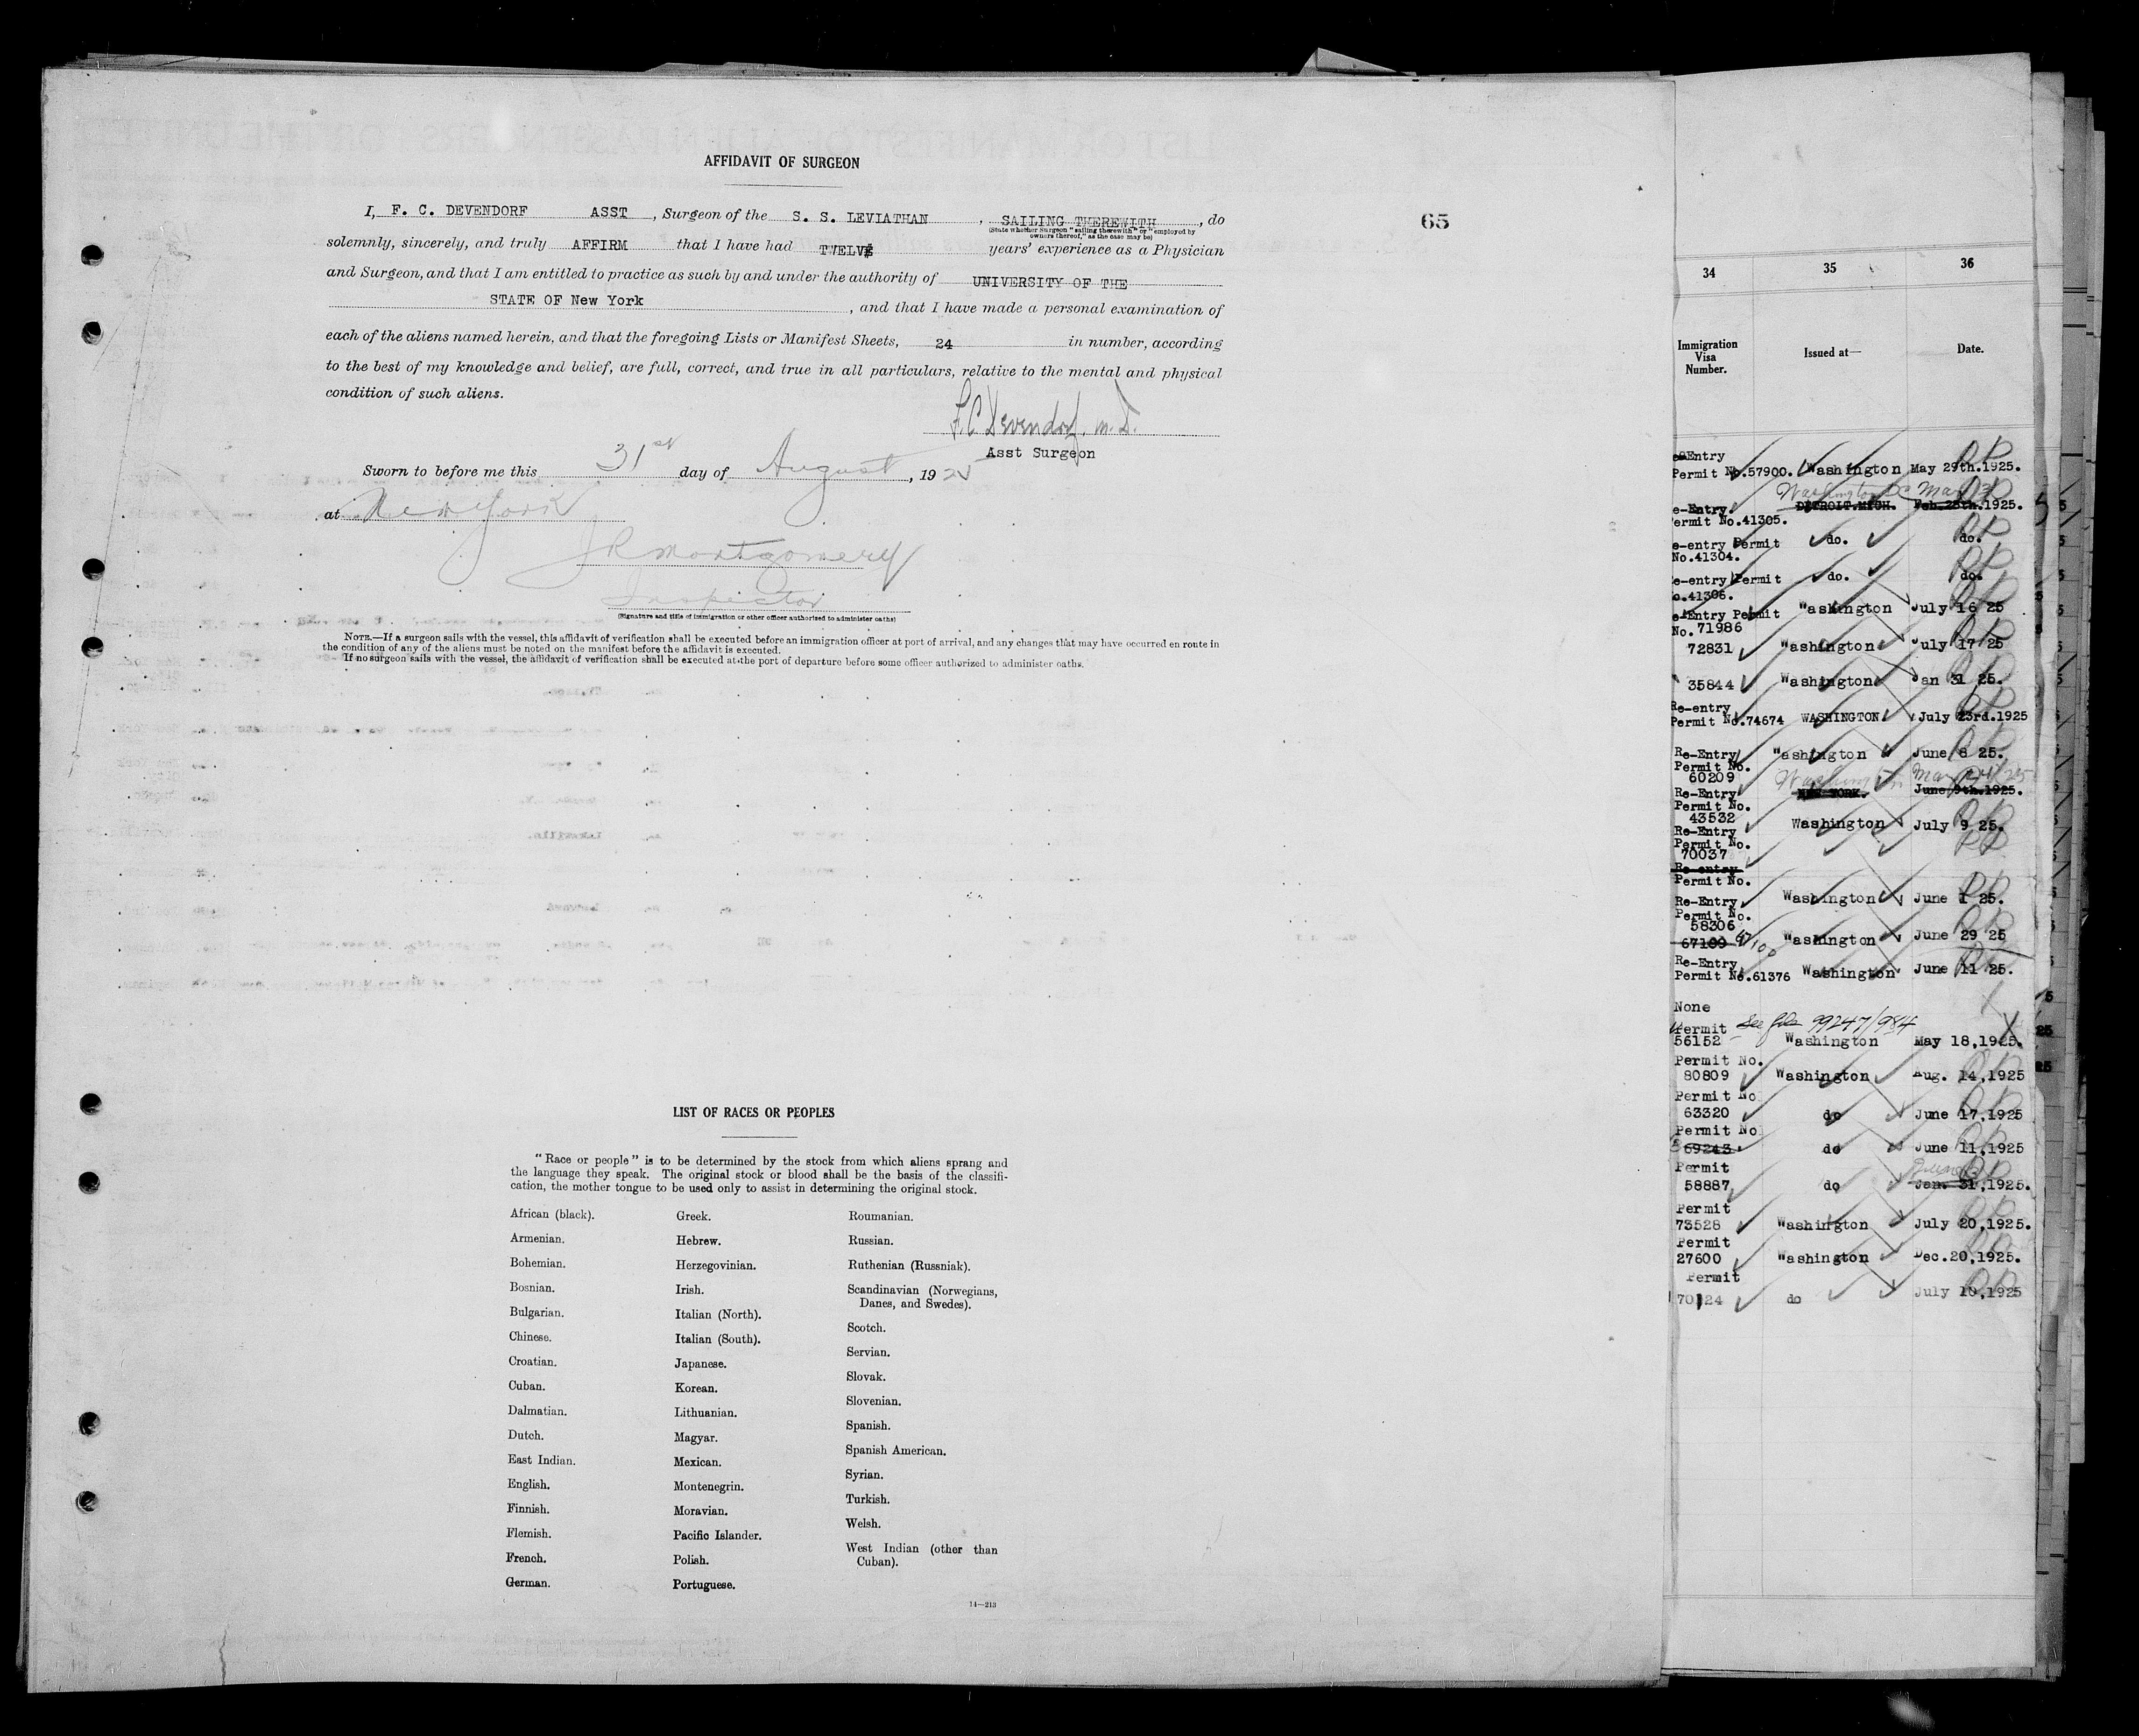 AFFIDAVIT OF SURGEON
I, F. C. DEVENDORF ASST , Surgeon of the S. S. LEVIATHAN , SAILING THEREWITH , do
(State whether Surgeon "sailing therewith" or "employed by
owners thereof," as the case may be)
solemnly, sincerely, and truly AFFIRM that I have had TWELVE years' experience as a Physician
and Surgeon, and that I am entitled to practice as such by and under the authority of UNIVERSITY OF THE
STATE OF New York , and that I have made a personal examination of
each of the aliens named herein, and that the foregoing Lists or Manifest Sheets, 24 in number, according
to the best of my knowledge and belief, are full, correct, and true in all particulars, relative to the mental and physical
condition of such aliens.
F. C. Devendorf, M. D.
Asst Surgeon
Sworn to before me this 31st day of August , 1925
at New York
J R Montgomery
Inspector
(Signature and title of immigration or other officer authorized to administer oaths)
NOTE.—If a surgeon sails with the vessel, this affidavit of verification shall be executed before an immigration officer at port of arrival, and any changes that may have occurred en route in
the condition of any of the aliens must be noted on the manifest before the affidavit is executed.
If no surgeon sails with the vessel, the affidavit of verification shall be executed at the port of departure before some officer authorized to administer oaths.
65
LIST OF RACES OR PEOPLES
"Race or people" is to be determined by the stock from which aliens sprang and
the language they speak. The original stock or blood shall be the basis of the classifi-
cation, the mother tongue to be used only to assist in determining the original stock.
African (black).
Armenian.
Bohemian.
Bosnian.
Bulgarian.
Chinese.
Croatian.
Cuban.
Dalmatian.
Dutch.
East Indian.
English.
Finnish.
Flemish.
French.
German.
Greek.
Hebrew.
Herzegovinian.
Irish.
Italian (North).
Italian (South).
Japanese.
Korean.
Lithuanian.
Magyar.
Mexican.
Montenegrin.
Moravian.
Pacific Islander.
Polish.
Portuguese.
Roumanian.
Russian.
Ruthenian (Russniak).
Scandinavian (Norwegians,
Danes, and Swedes).
Scotch.
Servian.
Slovak.
Slovenian.
Spanish.
Spanish American.
Syrian.
Turkish.
Welsh.
West Indian (other than
Cuban).
14—213
34 35 36
Immigration
Visa
Number.
Issued at—
Date.
e-Entry
Permit No.57900. Washington May 29th.1925.
Washington DC Mar
e-Entry. DETROIT.MICH. Feb.25th.1925.
ermit No.41305.
e-entry Permit do. do.
No.41304.
e-entry Permit do. do.
o.41306.
e-Entry Permit Washington July 16 25
No. 71986
72831 Washington July 17 25
35844 Washington Jan 31 25.
Re-entry
Permit No.74674 WASHINGTON July 23rd.1925
Re-Entry Washington June 8 25.
Permit No.
60209 Washington
Re-Entry NEW YORK. June 9th.1925.
Permit No.
43532 Washington July 9 25.
Re-Entry
Permit No.
70037
Re-entry
Permit No.
Re-Entry Washington June 1 25.
Permit No.
58306
67100 67100 Washington June 29 25
Re-Entry
Permit No.61376 Washington June 11 25.
None
Permit See file 99247/984
56152 Washington May 18,1925.
Permit No.
80809 Washington Aug. 14,1925
Permit No
63320 do June 17,1925
Permit No
69243 do June 11,1925
Permit
58887 do Jan. 31,1925.
Permit
73528 Washington July 20,1925.
Permit
27600 Washington Dec.20,1925.
Permit
70124 do July 10,1925